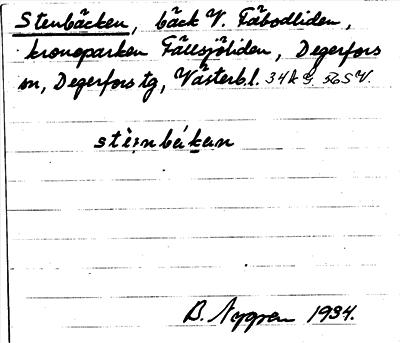 Stenbäcken, bäck V. Fäbodliden,
kronoparken Fällsjöliden, Degerfors
sn, Degerfors tg, Västerb.l. 34k G. 56 S V.
B. Nygren 1934.